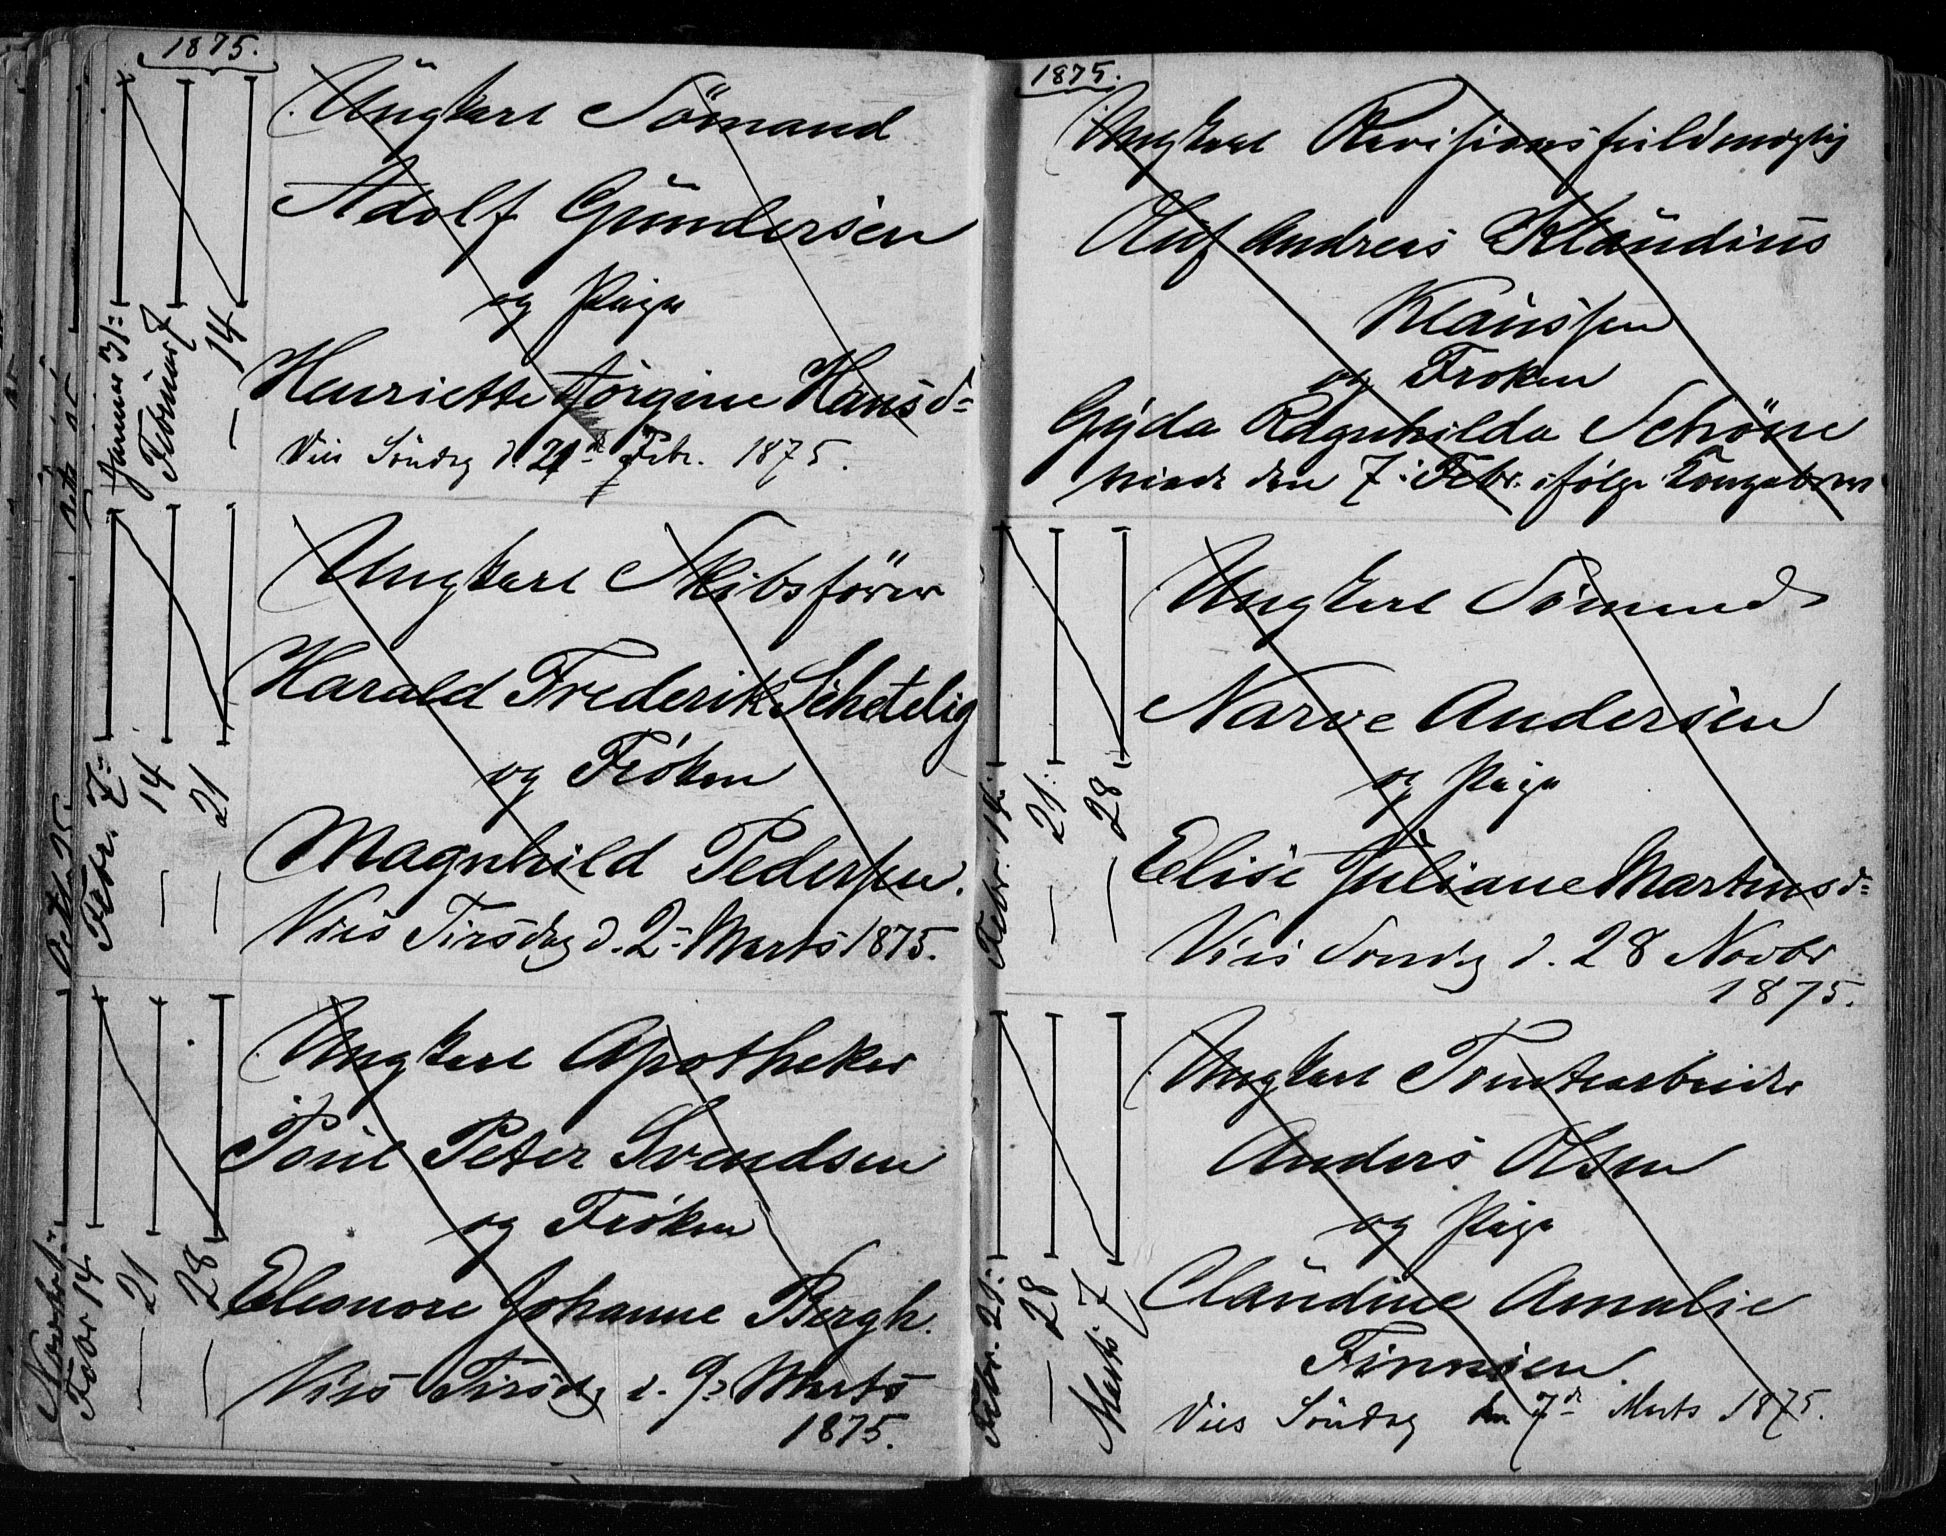 1875.
Ungkarl Sömand
Adolf Gundersen
og Pige
Henriette Jörgine Hansd=
Vies Søndag d. 21de Febr. 1875.
Januar 31=
Februar 7
— 14
Ungkarl Skibsförer
Harald Frederik Schetelig
og Frøken
Magnhild Pedersen.
Vies Tirsdag d. 2= Marts 1875.
Febr. 7=
— 14
— 21
Ungkarl Apotheker
Poul Peter Svendsen
og Frøken
Eleonore Johanne Bergh.
Vies Tirsdag d. 9= Marts
1875.
Febr 14
— 21
— 28
1875.
Ungkarl Revisionsfuldmægtig
Oluf Andreas Klaudius
Klaussen
og Frøken
Gyda Ragnhilda Schöne
viede den 7: Febr. ifølge Kongebrev
Ungkarl Sömand
Narve Andersen
og Pige
Elise Juliane Martinsd=
Vies Søndag d. 28 Novbr
1875.
Febr. 14:
— 21:
— 28
Ungkarl Tomtearbeider
Anders Olsen
og Pige
Claudine Amalie
Finnsen.
Vies Søndag den 7de Marts 1875.
Febr. 21:
— 28
Marts 7